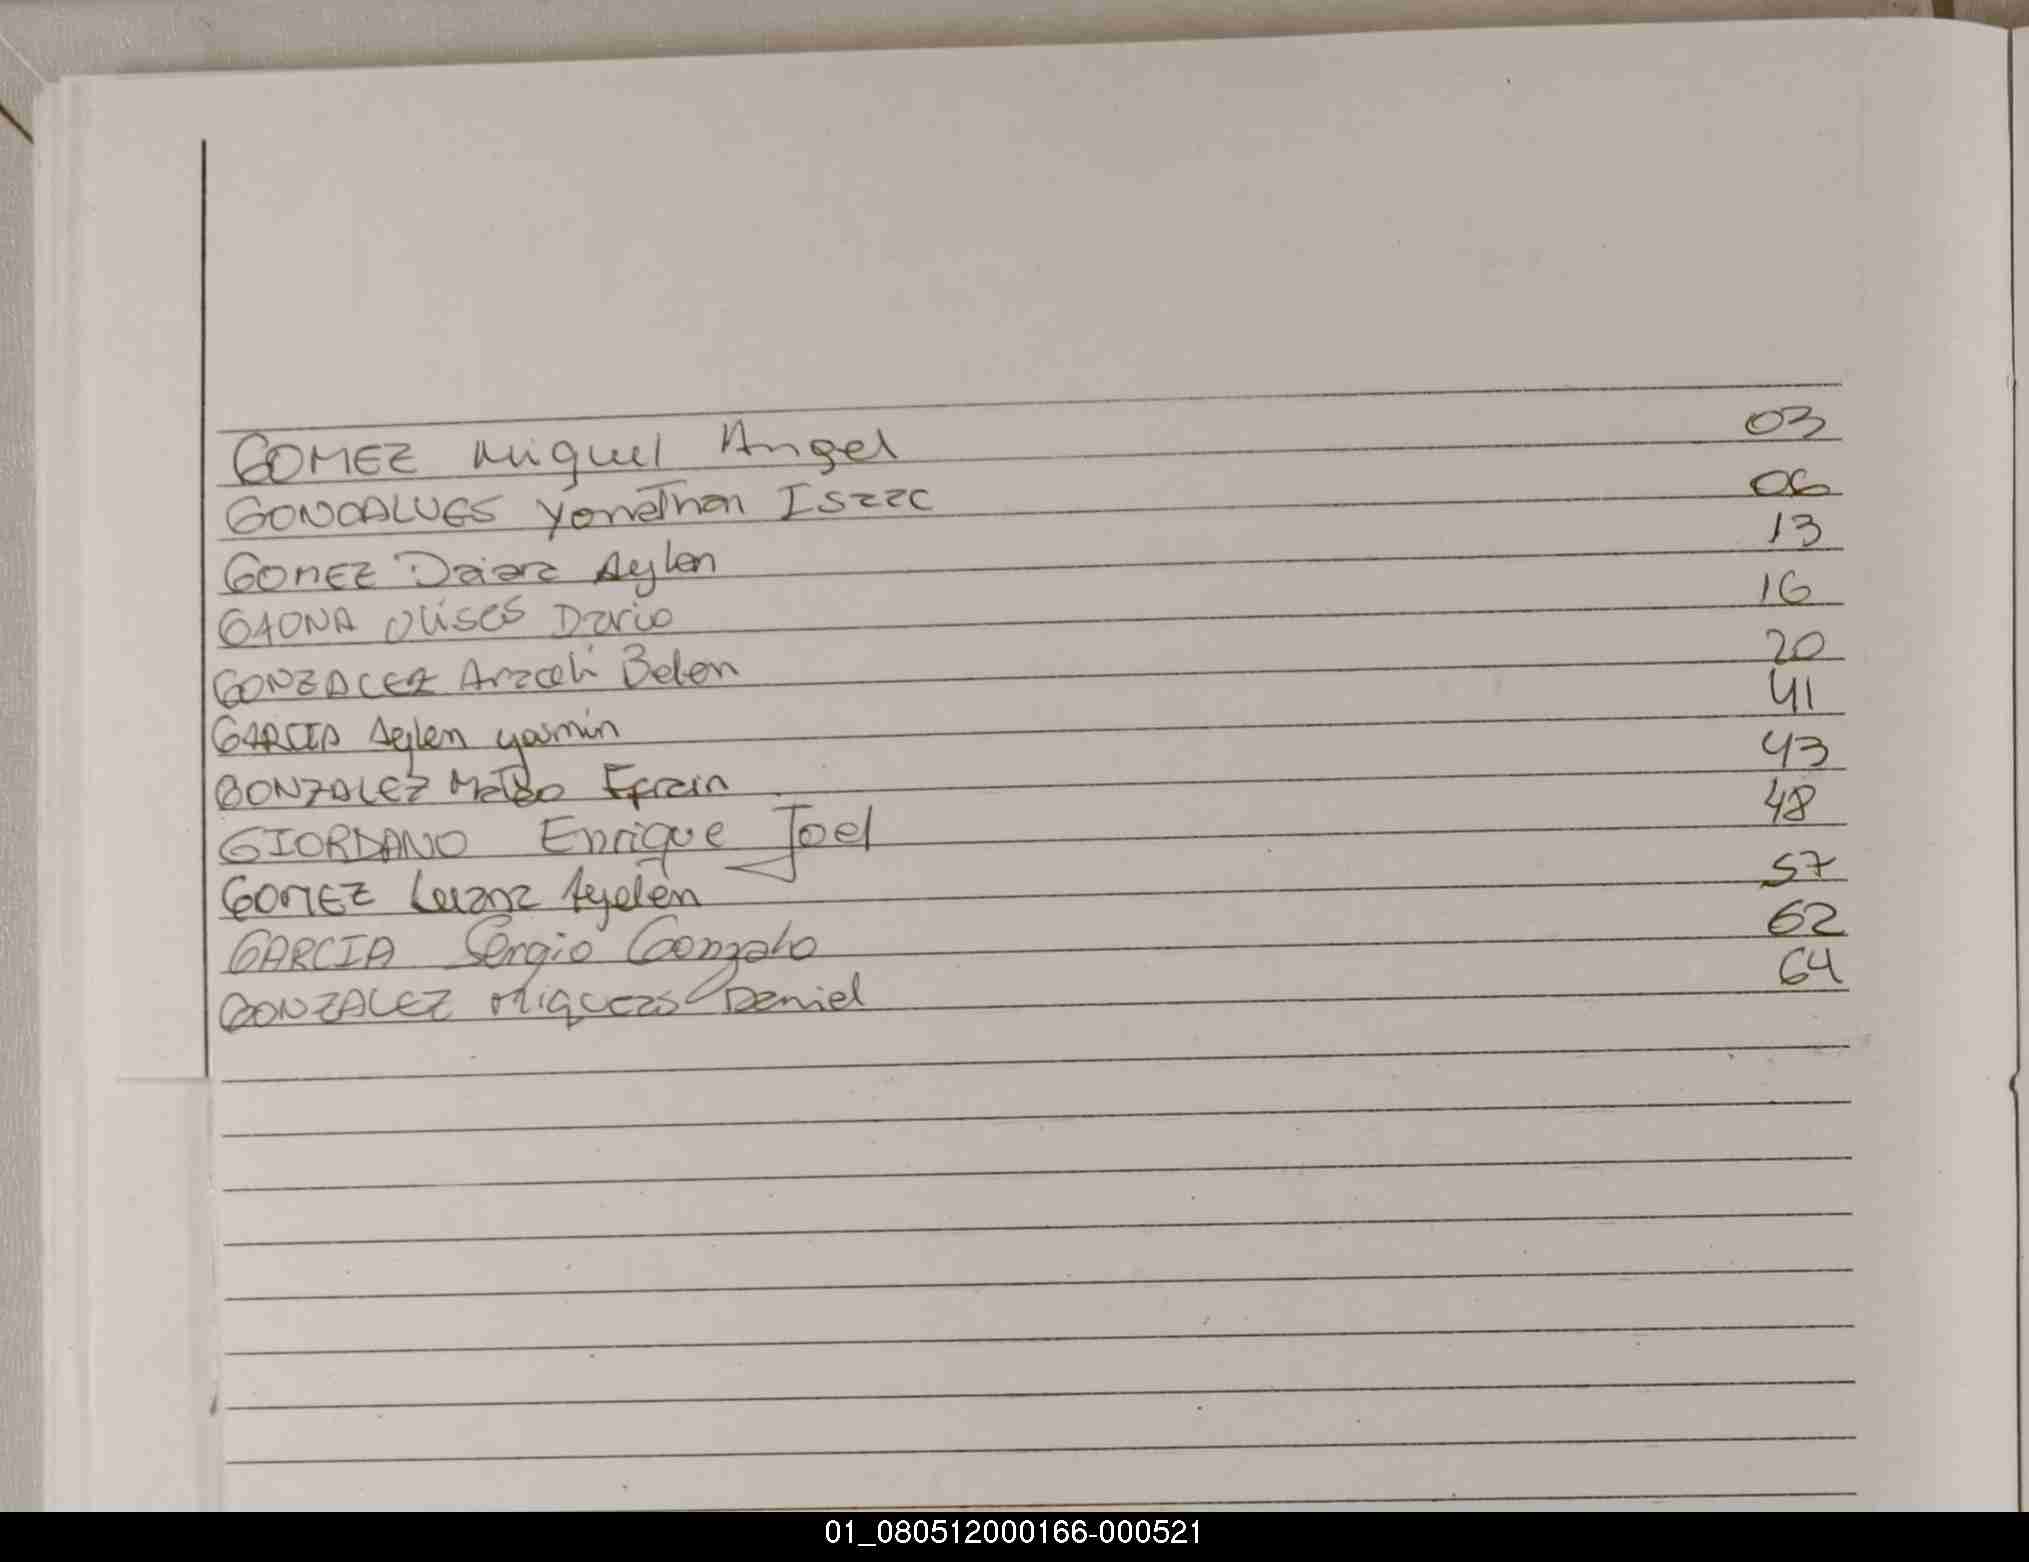 GOMEZ Miguel Angel 03
GONCALVES Yonathan Isaac 06
GOMEZ Daiara Aylen 13
GAONA Ulises Dario 16
GONZALEZ Araceli Belen 20
GARCIA Aylen yasmin 41
GONZALEZ Mateo Efrain 43
GIORDANO Enrique Joel 48
GOMEZ Luana Ayelen 57
GARCIA Sergio Gonzalo 62
GONZALEZ Miqueas Daniel 64
01_080512000166-000521